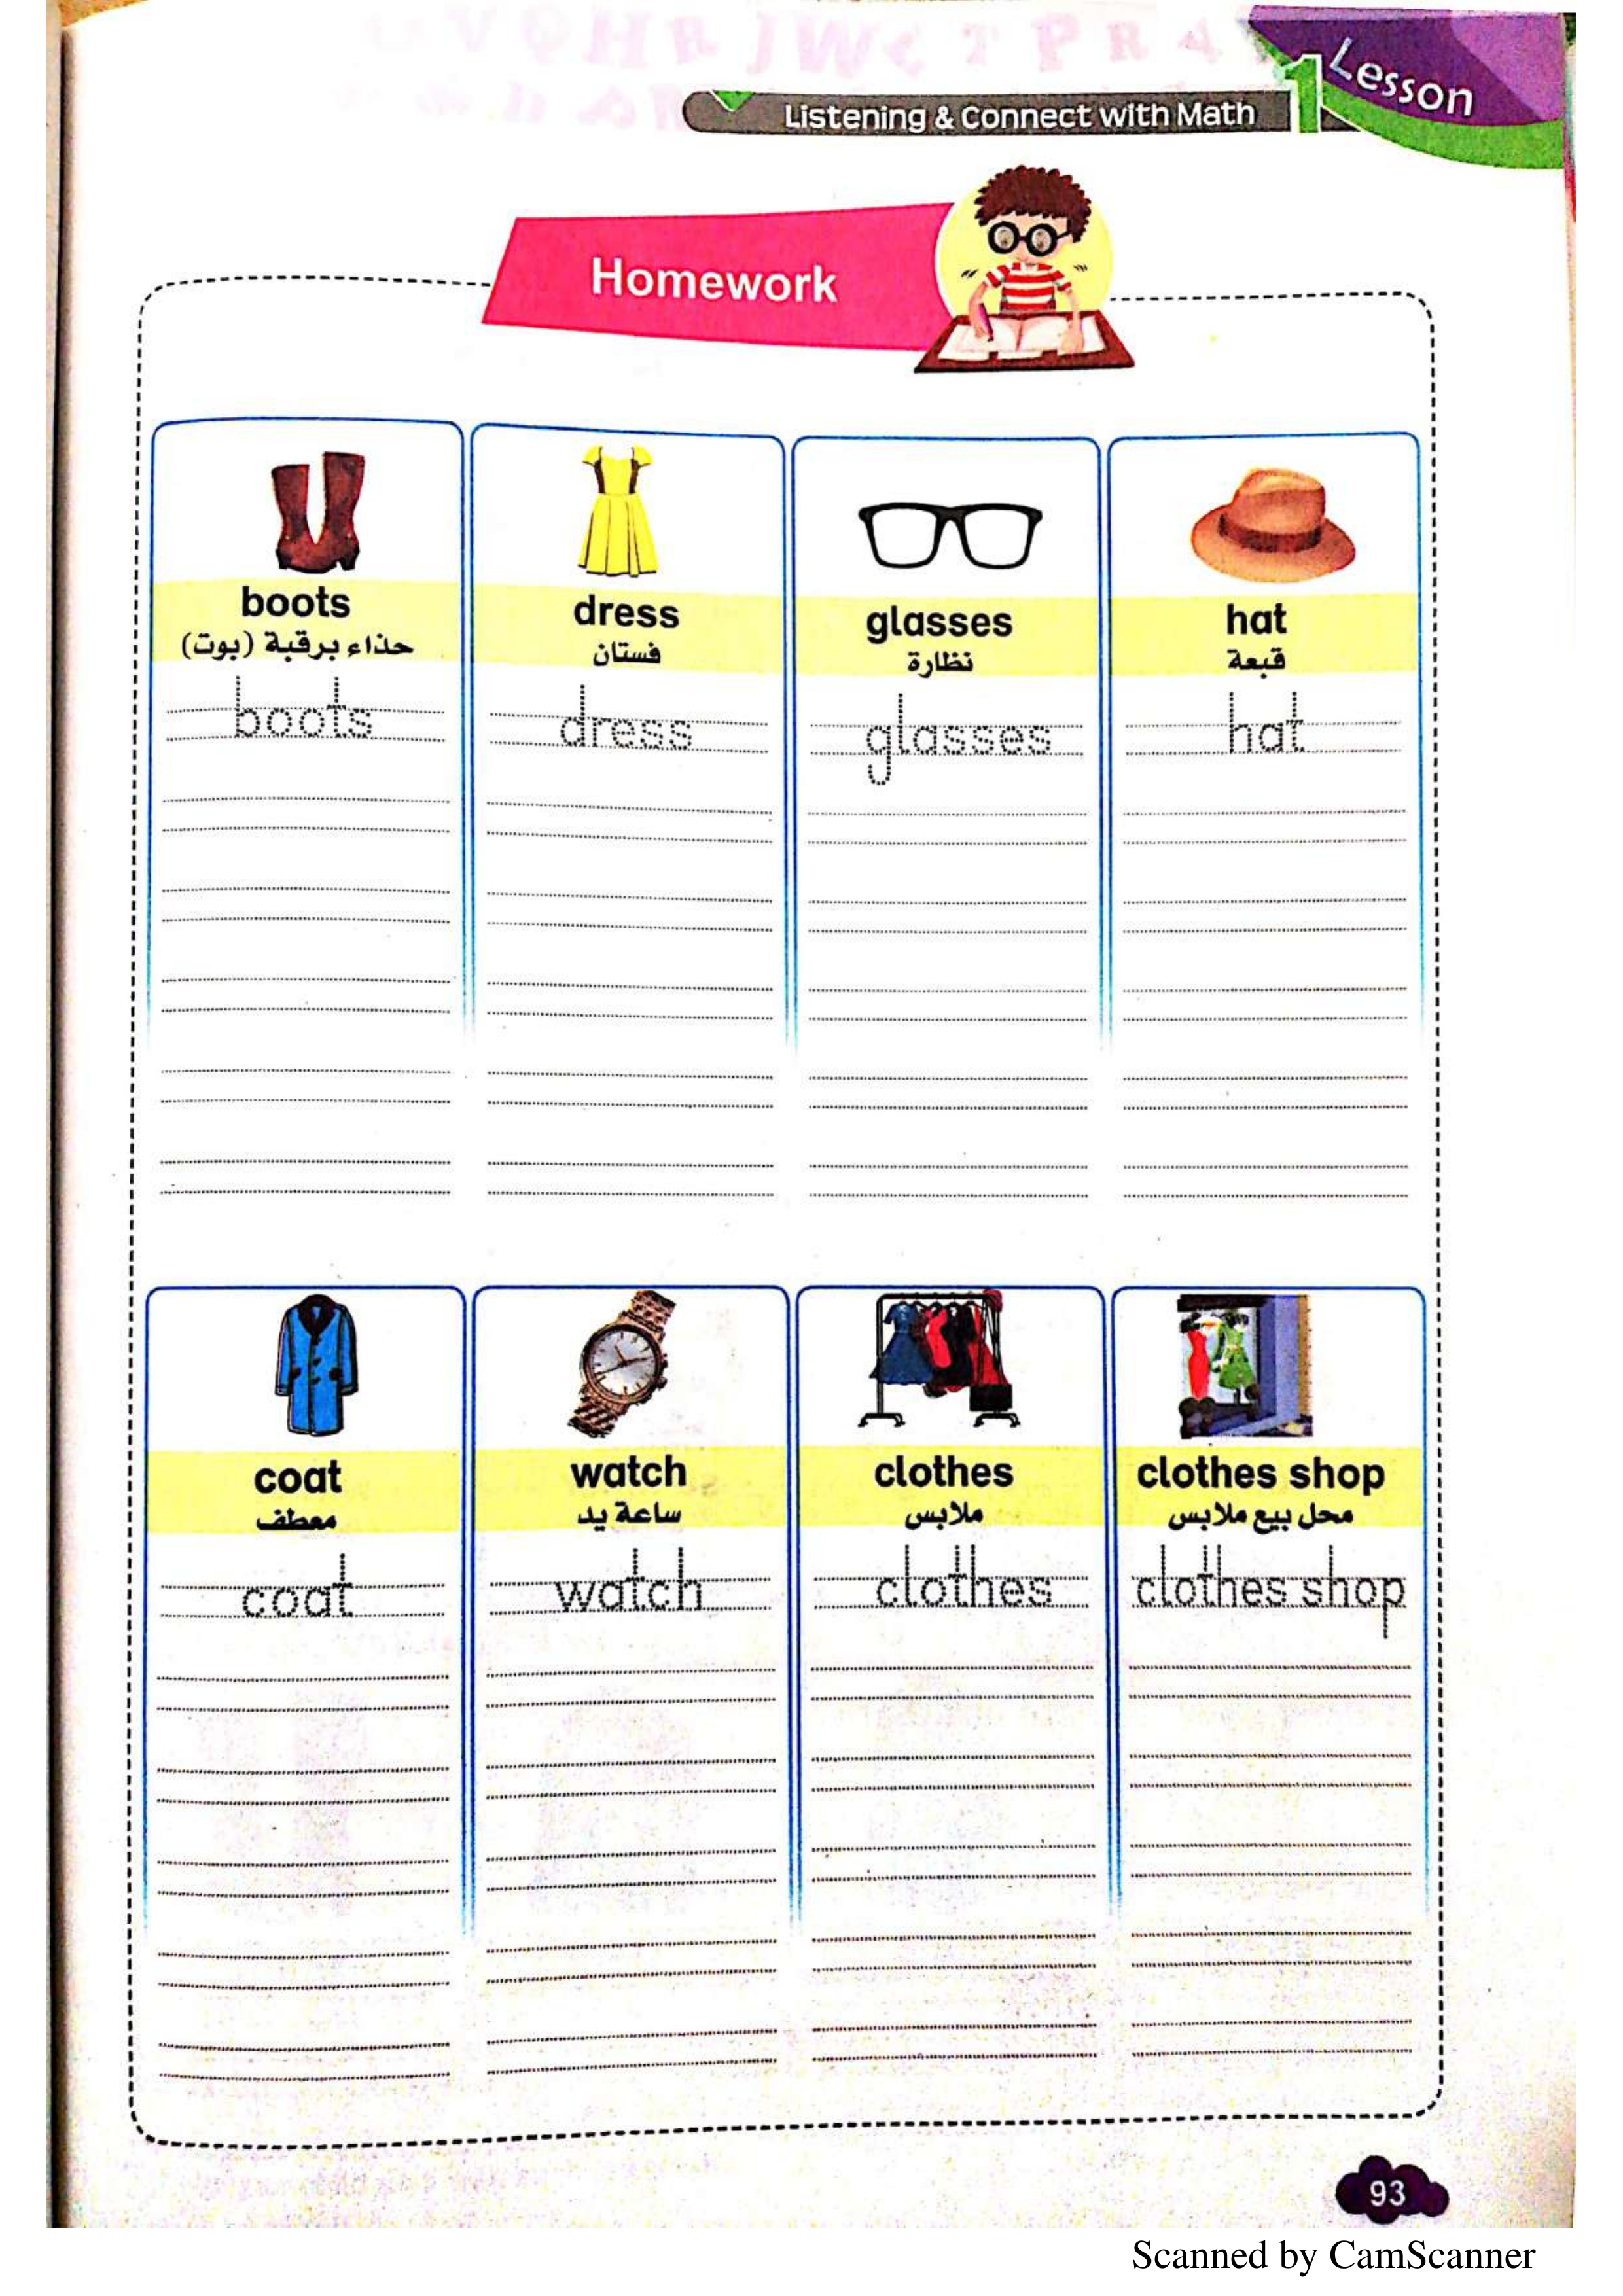 Lesson 1
Listening & Connect with Math
Homework
boots
حذاء برقبة (بوت)
boots
dress
فستان
dress
glasses
نظارة
glasses
hat
قبعة
hat
coat
معطف
coat
watch
ساعة يد
watch
clothes
ملابس
clothes
clothes shop
محل بيع ملابس
clothes shop
93
Scanned by CamScanner